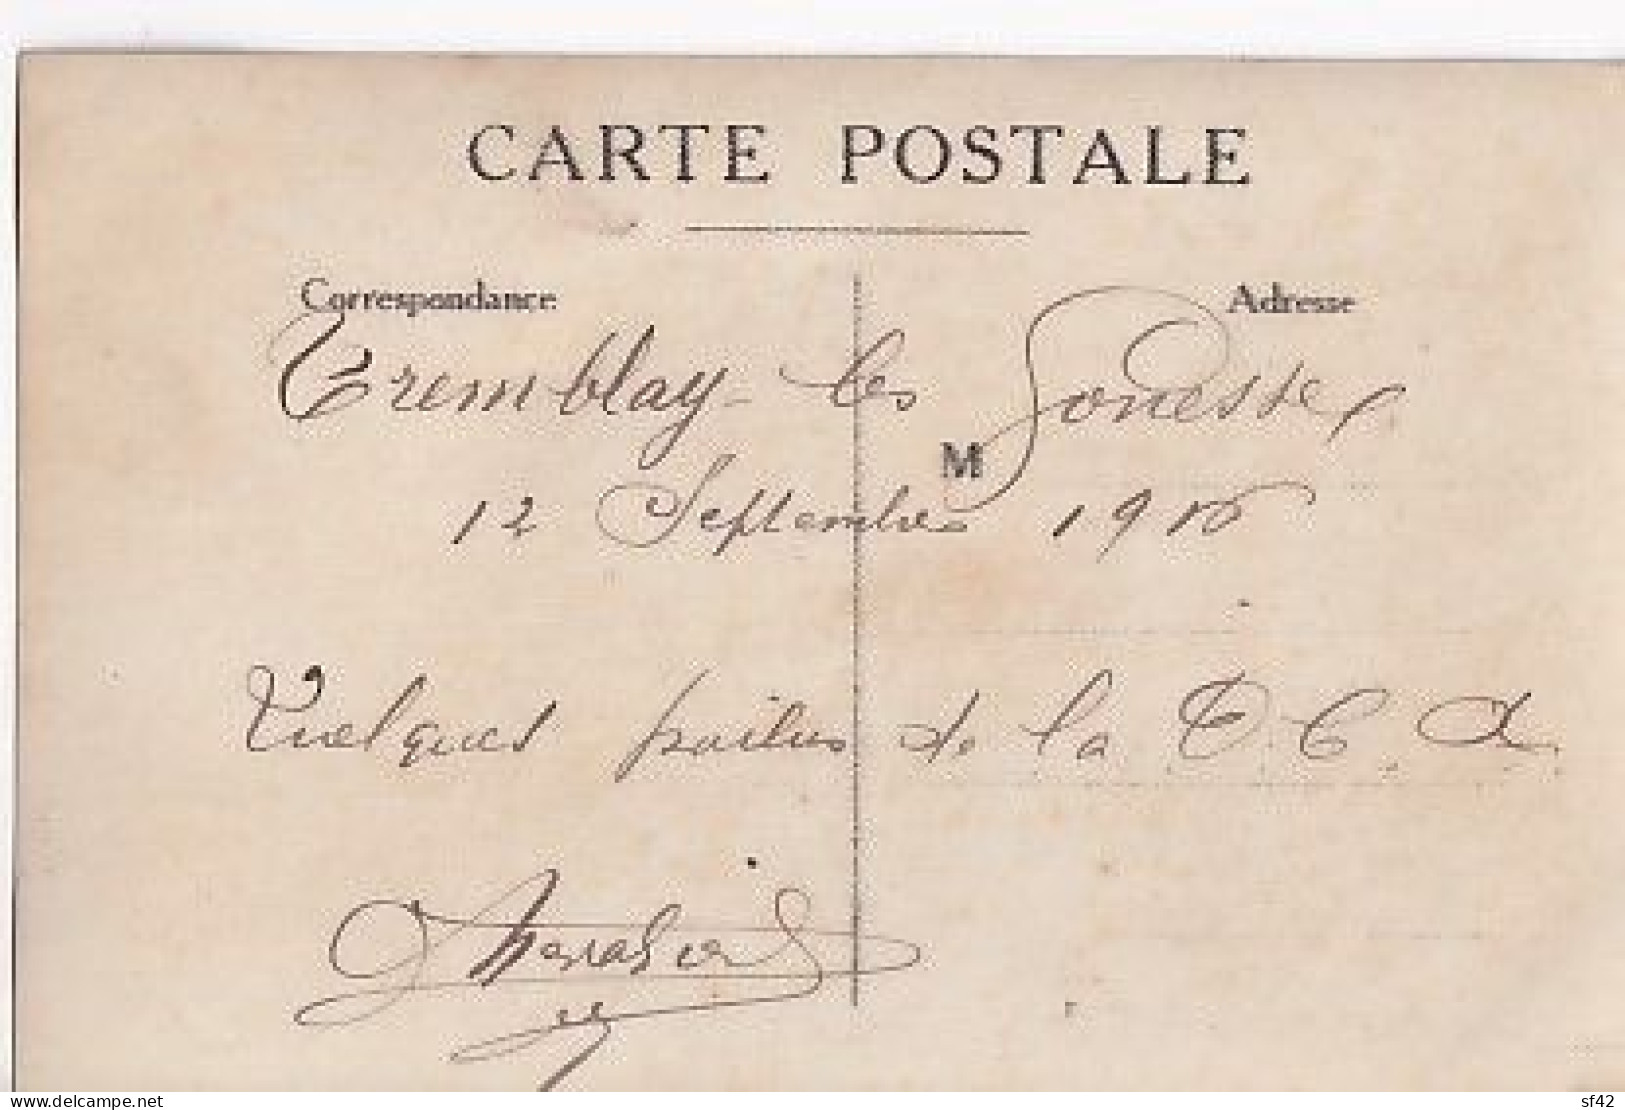 CARTE POSTALE
Correspondance
Adresse
Tremblay-les Gonesse
M
12 Septembre 191
Quelques poilus de la D.C.A.
delcampe.net
sf42